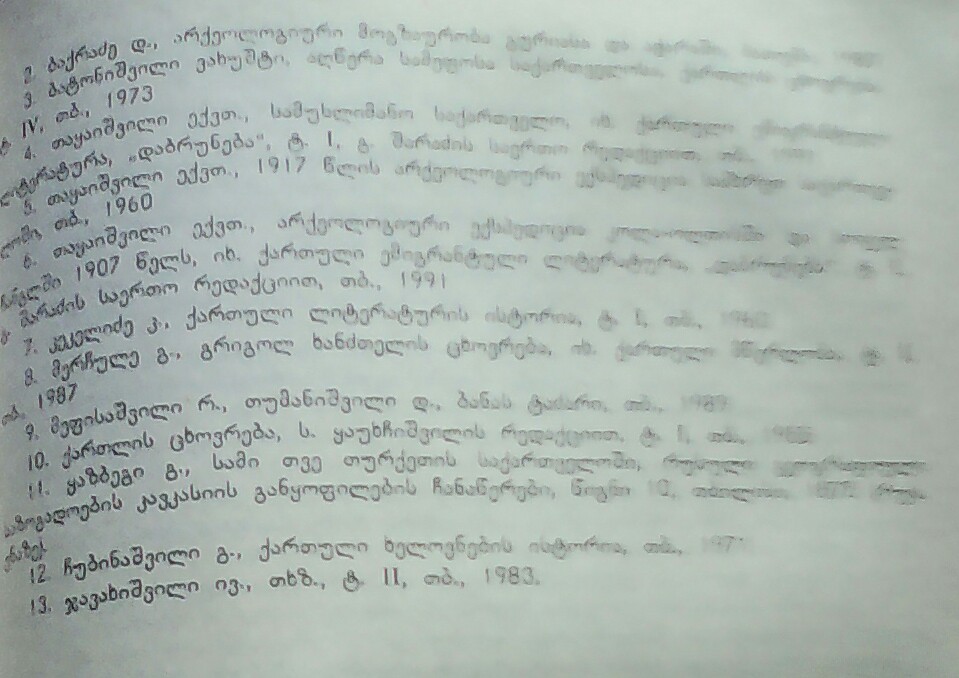 2. ბაქრაძე დ., არქეოლოგიური მოგზაურობა გურიასა და აჭარაში,
3. ბატონიშვილი ვახუშტი, აღწერა სამეფოსა საქართველოსა,
IV, თბ., 1973
4. თაყაიშვილი ექვთ., სამუსლიმანო საქართველო, იხ. ქართული ემიგრანტული
ლიტერატურა, „დაბრუნება“, ტ. I, გ. შარაძის საერთო რედაქციით, თბ.,
5. თაყაიშვილი ექვთ., 1917 წლის არქეოლოგიური ექსპედიცია სამხრეთ
თბ., 1960
6. თაყაიშვილი ექვთ., არქეოლოგიური ექსპედიცია კოლა-ოლთისში და
ჩანგლში 1907 წელს, იხ. ქართული ემიგრანტული ლიტერატურა,
შარაძის საერთო რედაქციით, თბ., 1991
7. კეკელიძე კ., ქართული ლიტერატურის ისტორია, ტ. I, თბ.,
8. მერჩულე გ., გრიგოლ ხანძთელის ცხოვრება, იხ. ქართული მწერლობა, ტ. I,
თბ. 1987
9. მეფისაშვილი რ., თუმანიშვილი დ., ბანას ტაძარი, თბ., 1989
10. ქართლის ცხოვრება, ს. ყაუხჩიშვილის რედაქციით, ტ. I, თბ.,
11. ყაზბეგი გ., სამი თვე თურქეთის საქართველოში, რუსული გეოგრაფიული
საზოგადოების კავკასიის განყოფილების ჩანაწერები, წიგნი 10, თბილისი,
12. ჩუბინაშვილი გ., ქართული ხელოვნების ისტორია, თბ.,
13. ჯავახიშვილი ივ., თხზ., ტ. II, თბ., 1983.